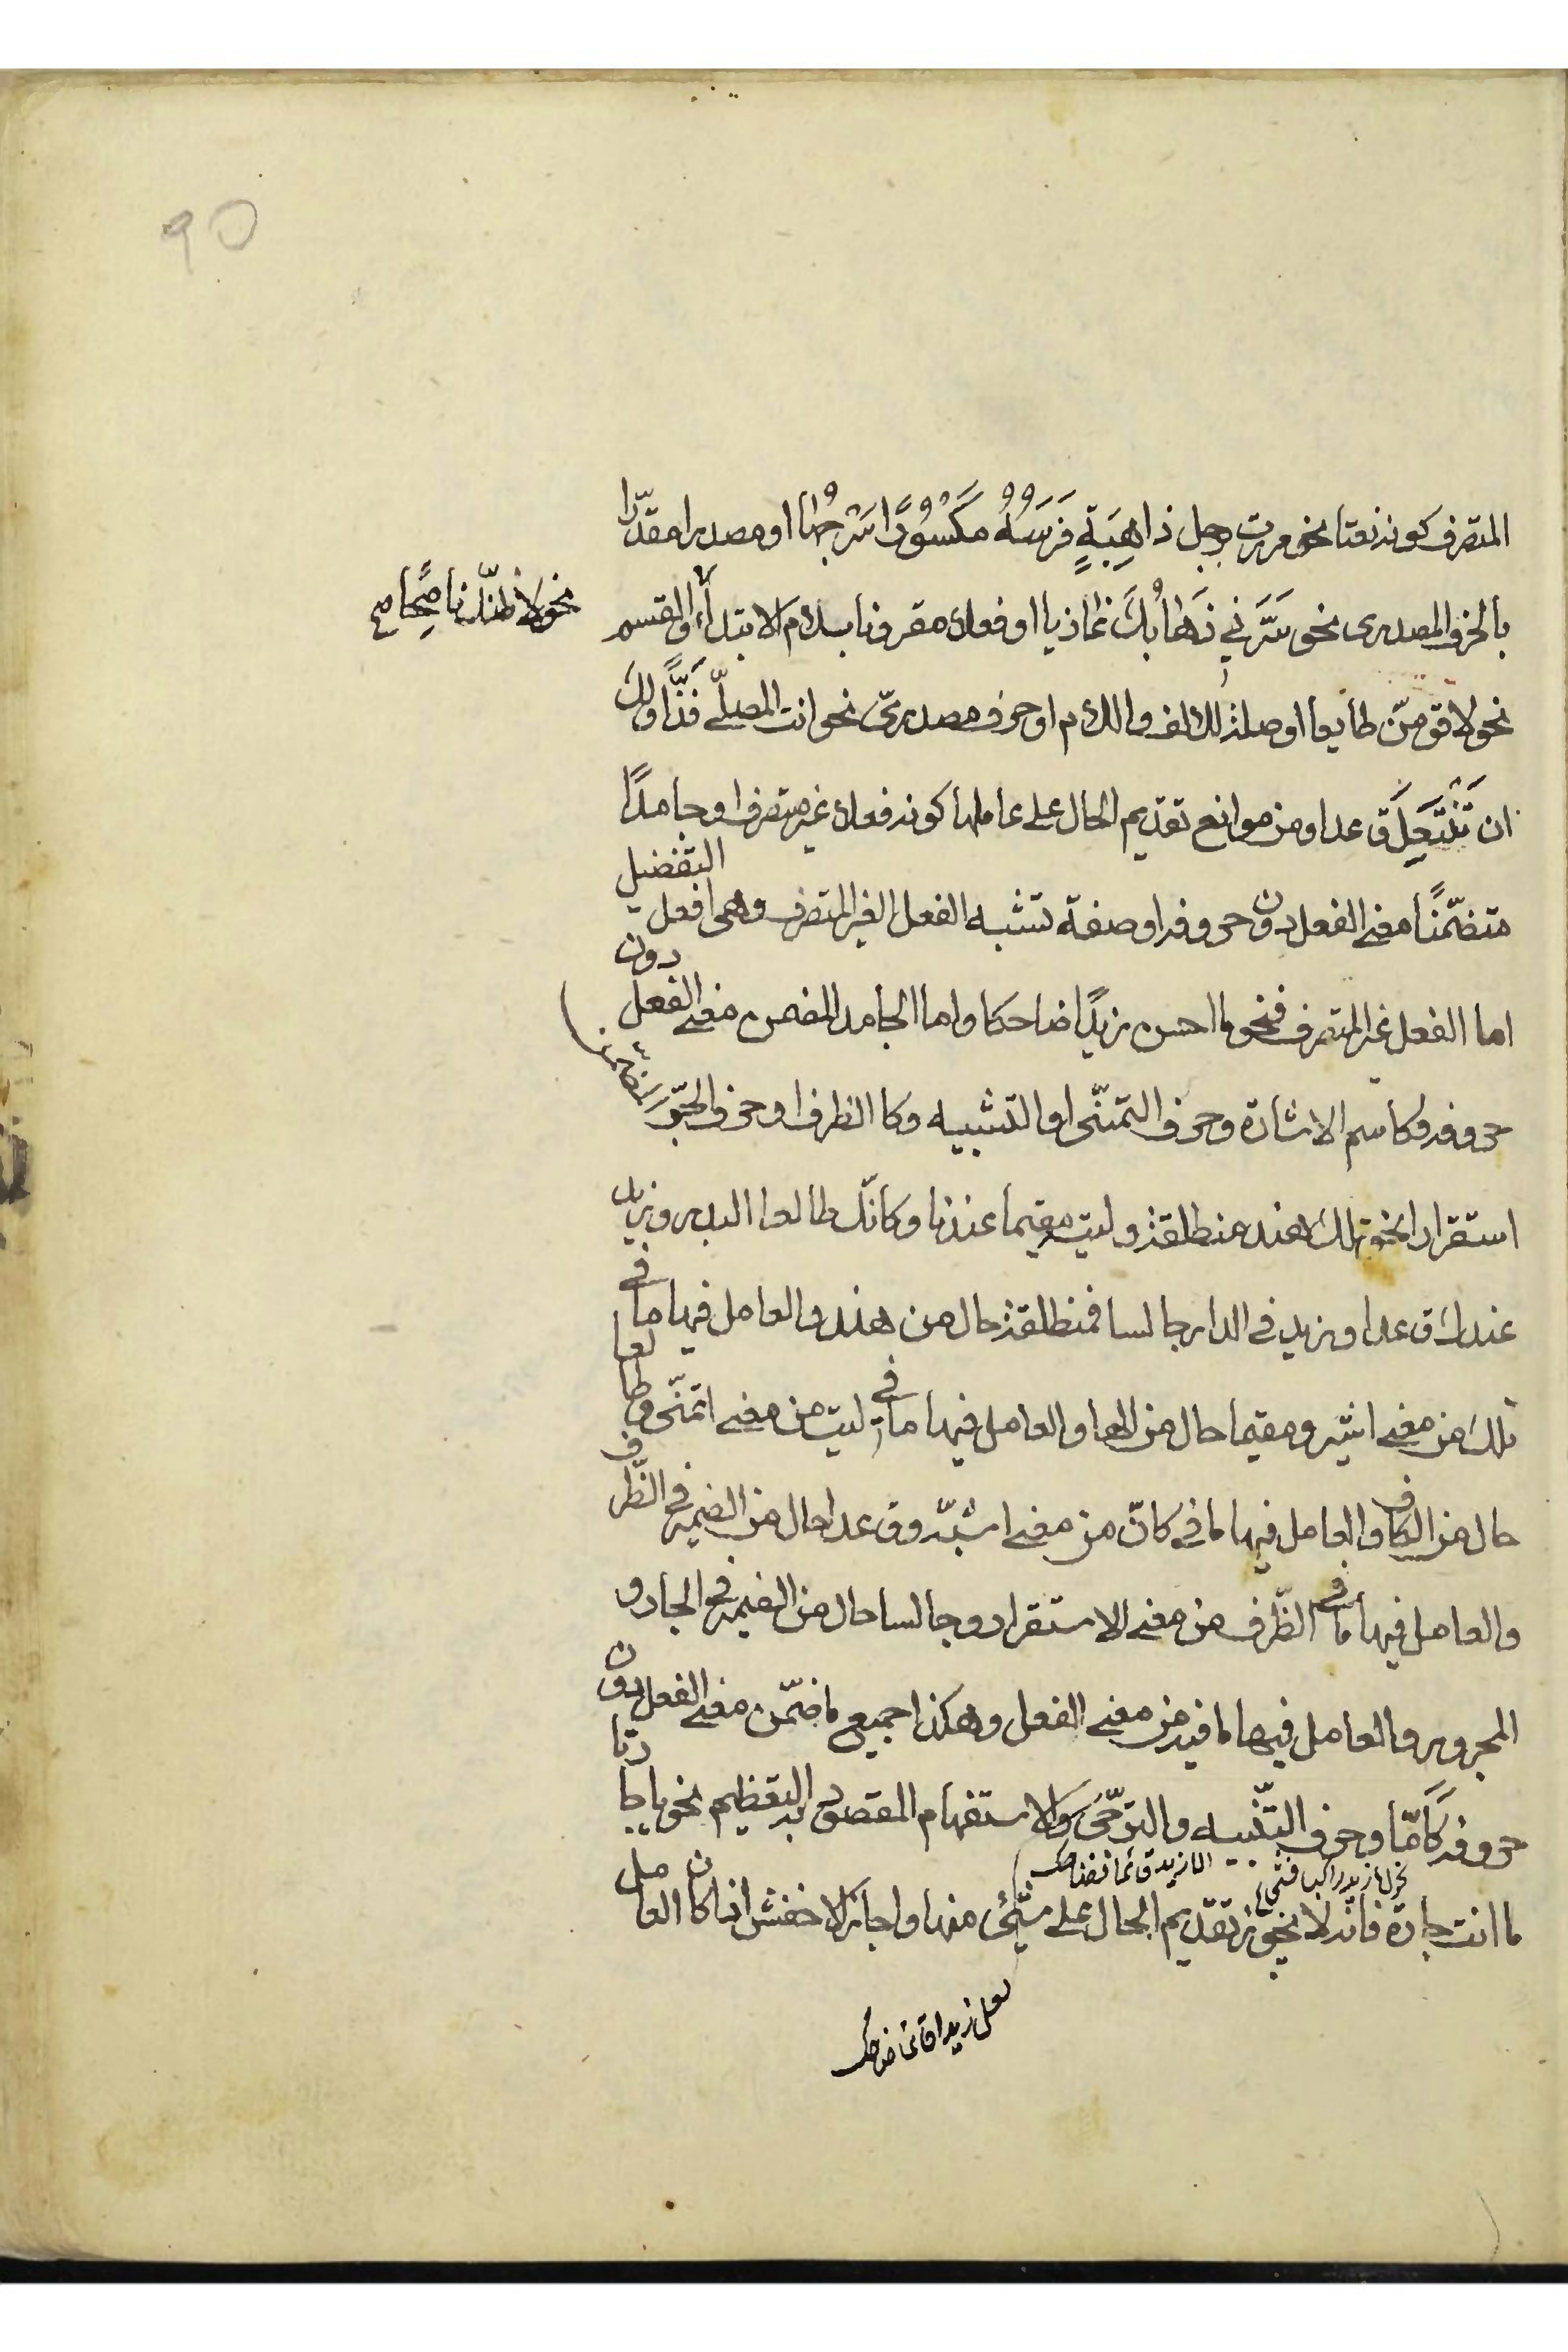 90
المتصرف كونه نعتا نحو مررت برجل ذاهِبَةٍ فَرَسُهُ مَكْسُوْرًا سَرْجُها او مصدرا مقدّرا
بالحرف المصدرى نحو سَرَّني ذَهابُكَ غازيا او فعلا مقرونا بلام الابتداء او القسم
نحو لاظنّك ناصِحًا صح
نحو لاقومنّ طايعا او صلة لالف واللام او حرف مصدرىّ نحو انت المصلّى فَذًّا ولكَ
ان تَنْتَقِلَ قاعدا ومن موانع تقديم الحال على عاملها كونه فعلا غير متصرف او جامدًا
متضمّنًا معنى الفعل دون حروفه او صفة تشبه الفعل الغير المتصرف وهى افعل التفضيل
اما الفعل غير المتصرف فنحو ما احسن زيدًا ضاحكا واما الجامد المضمن معنى الفعل دون
حروفه فكاسم الاشارة وحرف التمنّى او التشبيه وكا الظرف او حرف الجرّ
استقرارا نحو تلك هند منطلقة وليته مقيما عندنا وكانّك طالعا البدر وزيد
عندك قاعدا وزيد في الدار جالسا فمنطلقة حال من هند والعامل فيها ما في
تلك من معنى اشير ومقيما حال من الها والعامل فيها ما في ليت من معنى اتمنّى وطالعا
حال من الكاف والعامل فيها ما في كانّ من معنى اشبّه وقاعدا حال من الضمير في الظّرف
والعامل فيها ما في الظّرف من معنى الاستقرار وجالسا حال من الضمير في الجار و
المجرور والعامل فيها ما فيه من معنى الفعل وهكذا جميع ما ضمّن معنى الفعل دون
حروفه كَامّا وحرف التّنبيه والترجّى والاستفهام المقصود به التعظيم نحو يا جارتا
ما انت جارة فانّه لا يجوز تقديم الحال على شيْئ منها واجاز الاخفش اذا كان العامل
لعل زيدا قائما ضاحك